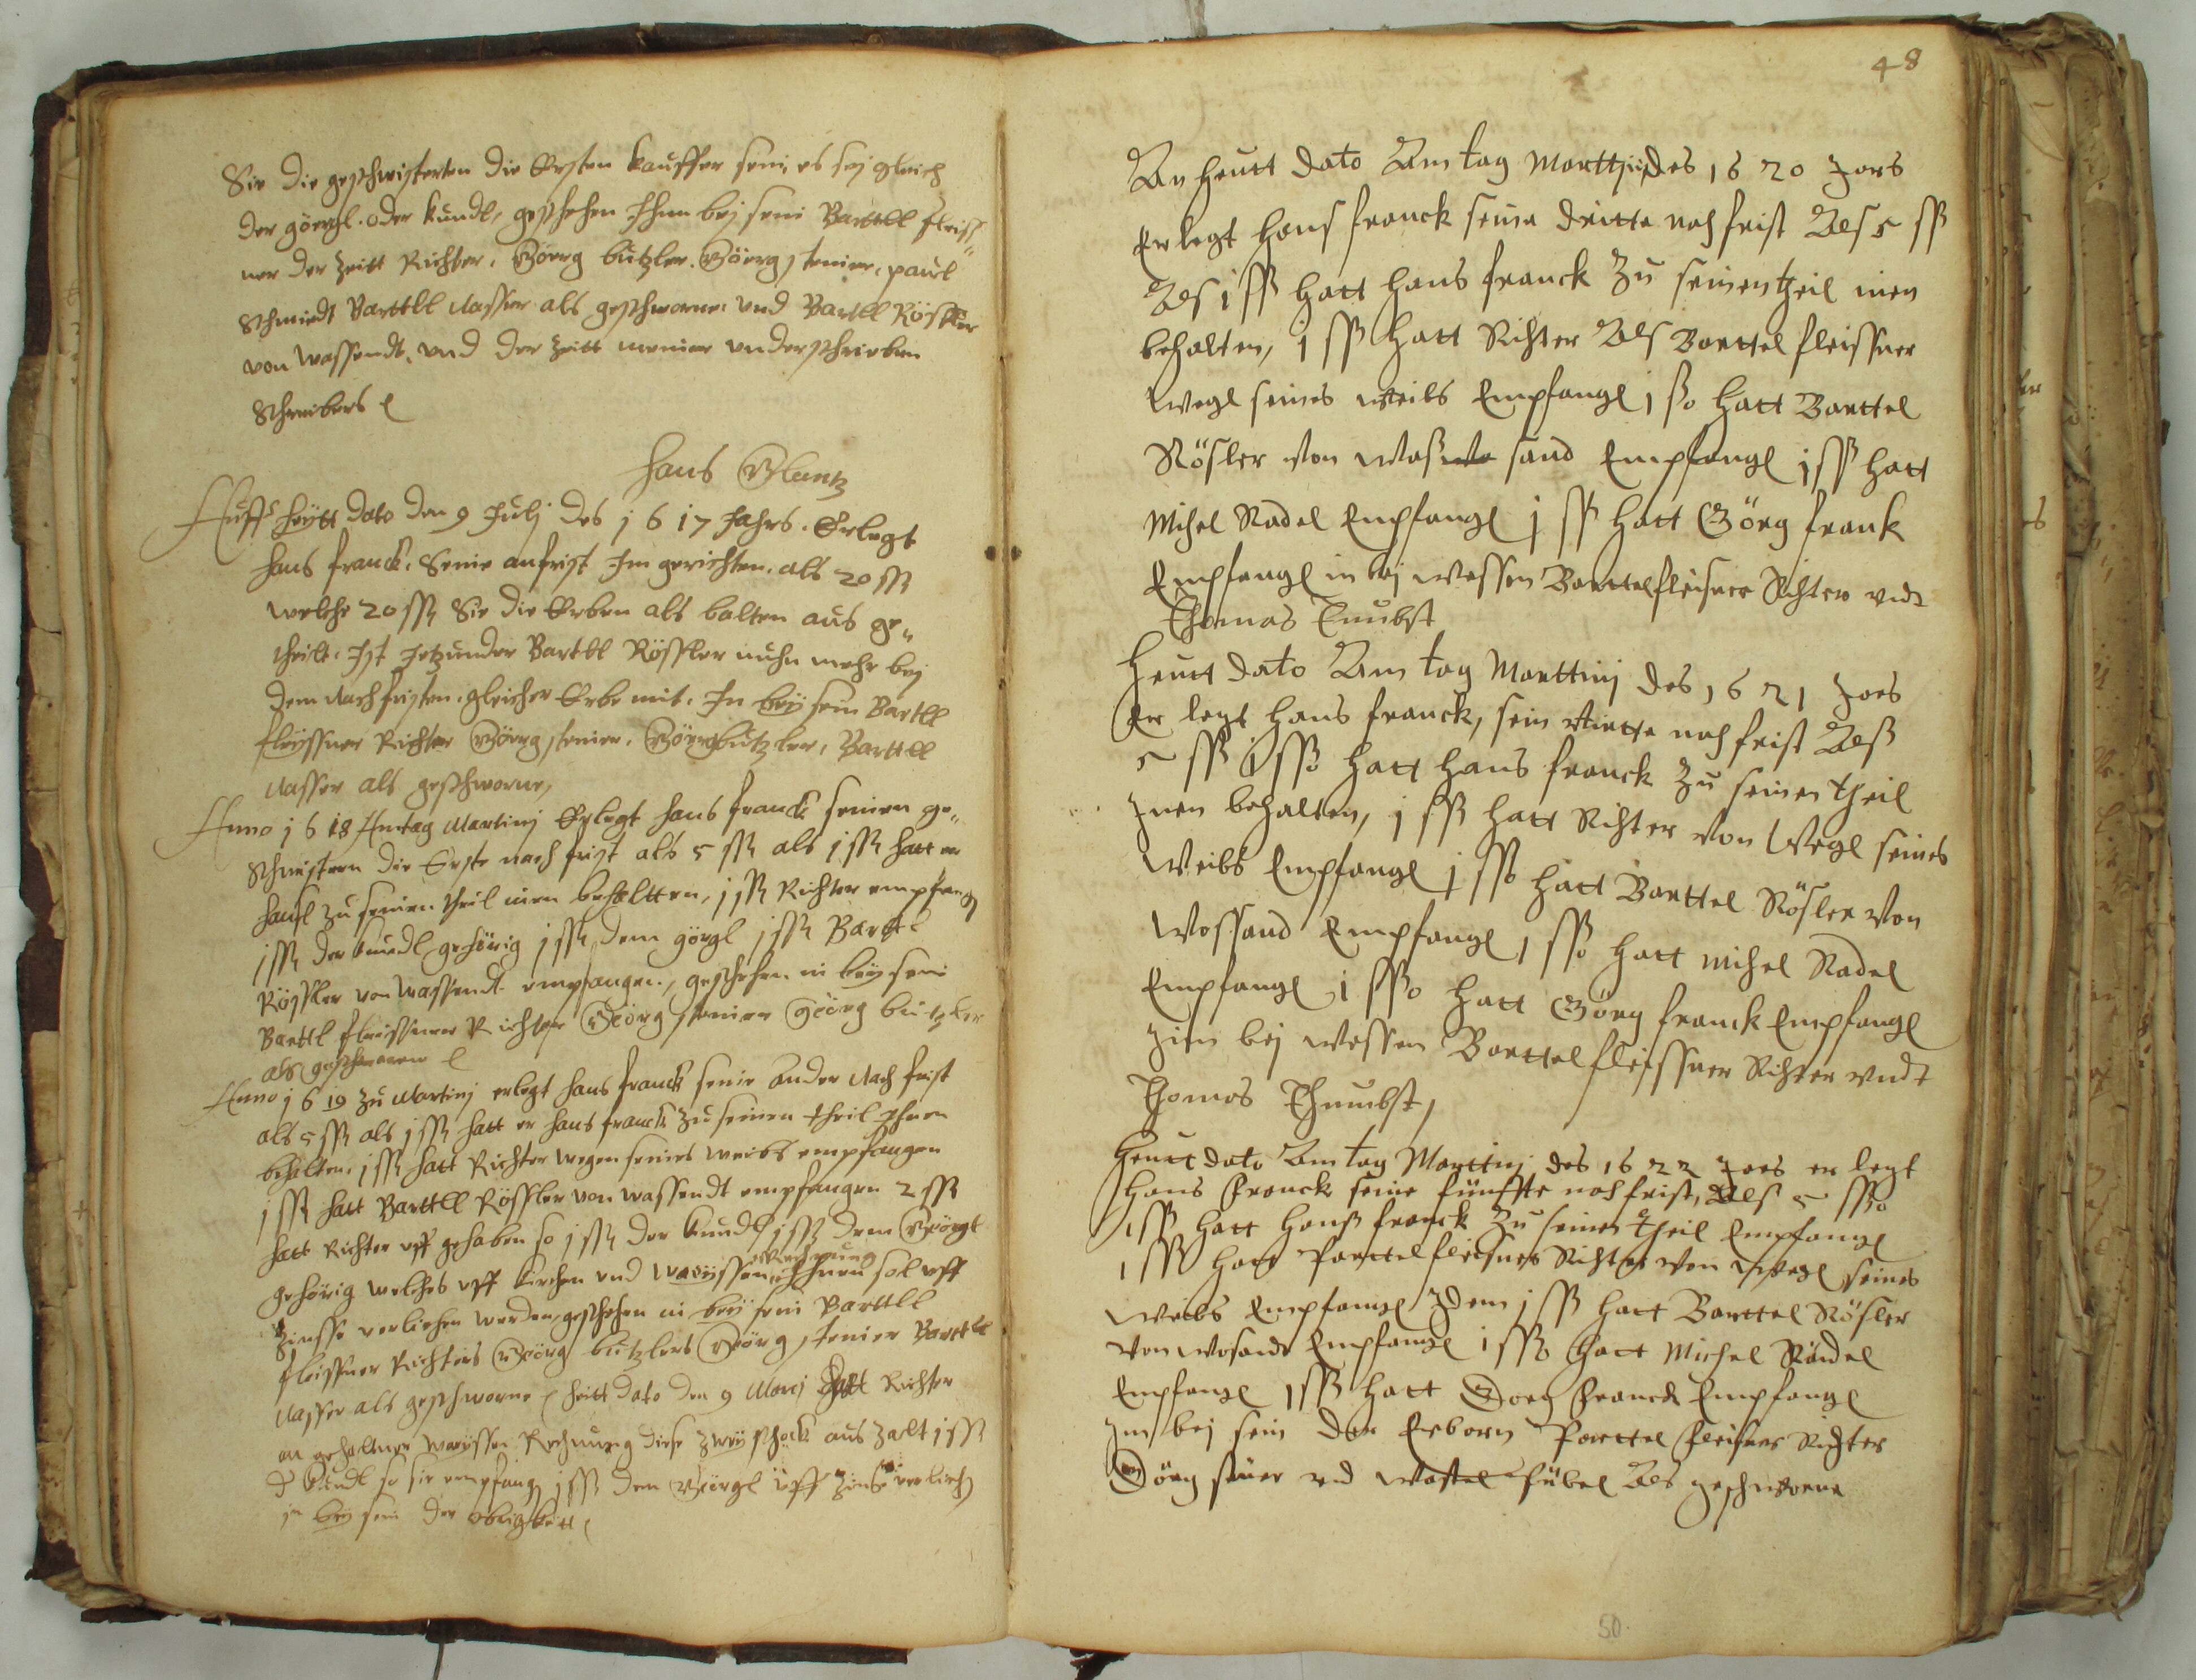 Sie die geschwisterten die Ersten kauffer sein, es sej gleich
der görgl. oder kundl, geschehen Ihnn bej sein Barttll fleiss-
ner der Zeitt Richter, Görg butzler. Görg steiner, paul
Schmiedt Barttll Nasser als geschworne, und Barttl Rößler
von Wassendt, und der Zeitt meiner underschrieben
Schreibers
Hans Glantz
Auff heÿtt dato den 9 Julj des 1617 Jahrs. Erlegt
Hans franck. Seine anfrist Im gerichten, als 20 ßß
welche 20 ßß Sie die Erben als balten aus ge-
theilt. Ist Jetzunder Barttl Rößler nuhn mehr bej
dem Nachfristen, gleicher Erbe mit. In beÿ sein Barttl
fleÿssner Richter Görg steiner, Görg butzler, Barttll
Nasser als geschworne,
Anno 1618 Am tag Martinj Erlegt Hans franck seinen ge-
schwistern die Erste nach frist als 5 ßß als 1 ßß hatt er
Hansl zu seinen theil inen behaltten, 1 ßß Richter empfang
1 ßß der kundl gehörig 1 ßß dem görgl 1 ßß Barttl
Rößler von Wassendt empfangen, geschehen in beÿ sein
Barttl fleissner Richter Georg steiner Georg butzler
als geschworne
Anno 1619 zu Martinj erlegt Hans franck seine ander Nach frist
als 5 ßß als 1 ßß hatt er Hans franck zu seinen theil Ihnen
behalten, 1 ßß hatt Richter wegen seines weibs empfangen
1 ßß hatt Barttll Rößler von Wassendt empfangen 2 ßß
hatt Richter uff gehaben so 1 ßß der kundl 1 ßß dem Geörgl
gehörig welches uff kirchen und Waeÿssen Rechnung Ihnen sol uff
Zinsse verliehen werden, geschehen in beÿ sein Barttll
fleissner Richters Geörg butzlers Geörg steiner Barttll
Nasser als geschworne heitt dato den 9 Marcj hatt Richter
an gehaltner Waeÿssen Rechnung diese zweÿ schock aus zalt 1 ßß
d kundl so sie empfang 1 ßß dem Geörgl uff Zinse verlieh
in beÿ sein der obrigkeitt
48
An heutt dato Am tag Marttinj des 1620 Jars
Erlegt Hans franck seine dritte nachfrist Als 5 ßß
Als 1 ßß hatt Hans franck zu seinen theil inen
behalten, 1 ßß hatt Richter Als Barttel fleissner
Wegl seines weibs Empfangl 1 ßo hatt Barttel
Rösler von Waß sand Empfangl 1 ßß hatt
Michel Nadel Empfangl 1 ßß hatt Görg frank
Empfangl in bej Wessen Barttel fleisner Richter vndt
Thomas Tumbst
Heutt dato Am tag Marttinj des 1621 Jars
er legt Hans franck, sein virtte nachfrist Alß
5 ßß 1 ßßo hatt Hans franck zu seinen theil
Inen behalten, 1 ßß hatt Richter von Wegl seines
Weibs Empfangl 1 ßßo hatt Barttel Rösler von
Wossand Empfangl 1 ßßo hatt Michel Nadel
Empfangl 1 ßßo hatt Görg franck Empfangl
Im bej Wessen Barttel fleissner Richter vndt
Thomas Thumbst,
Heutt dato Am tag Marttinj des 1622 Jars er legt
Hans Franck seine fünffte nachfrist, Als 5 ßßo
1 ßß hatt Hanß franck zu seinen theil Empfangl
1 ßß hatt Parttel fleisner Richter von Wegl seines
Weibs Empfangl 1 ßß hatt Barttel Rösler
von Wosandt Empfangl 1 ßßo hatt Michel Nadel
Empfangl 1 ßß hatt Georg Franck Empfangl
Im bej sein der Erborn Parttel Fleisner Richter
Görg vnd Wastel hübel Als geschworne
50.